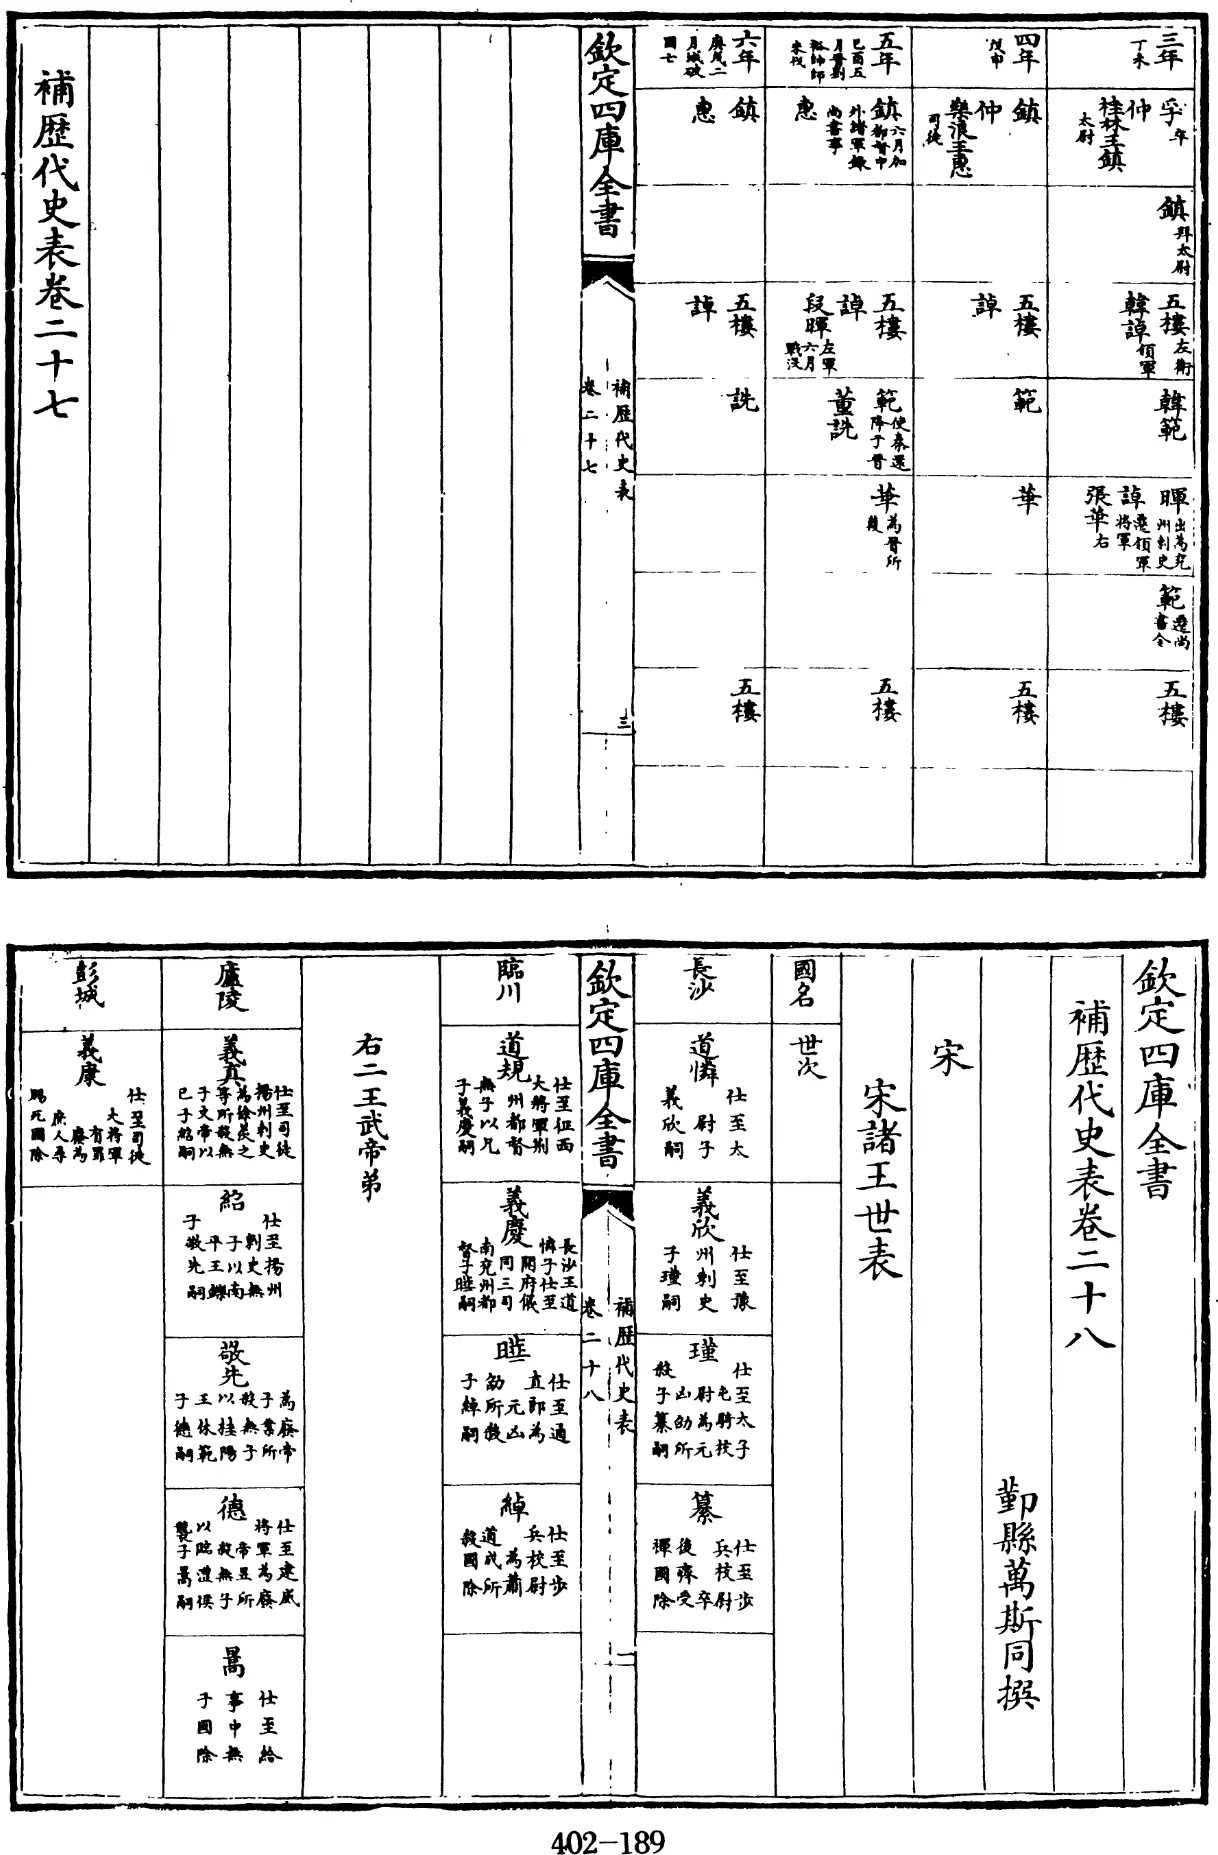 三年丁未
孚卒
仲
桂林王鎮太尉
鎮拜太尉
五樓左衛
韓𧨳領軍
韓範
暉出為兖州刺史
𧨳遷領軍將軍
張華右
範遷尚書令
五樓
四年戊申
鎮
仲
樂浪王惠司徒
五樓
𧨳
範
華
五樓
五年己酉五月晉劉裕帥師來伐
鎮六月加都督中外諸軍錄尚書事
惠
五樓
𧨳
段暉左軍六月戰沒
範使秦還降于晉
董詵
華為晉所獲
五樓
六年庚戌二月城破國亡
鎮
惠
五樓
𧨳
詵
五樓
欽定四庫全書
補歷代史表
卷二十七
三
補歷代史表卷二十七
欽定四庫全書
補歷代史表卷二十八
鄞縣萬斯同撰
宋
宋諸王世表
國名
世次
長沙
道憐仕至太尉子義欣嗣
義欣仕至豫州刺史子瑾嗣
瑾仕至太子屯騎校尉為元凶劭所殺子纂嗣
纂仕至步兵校尉卒後齊受禪國除
欽定四庫全書
補歷代史表
卷二十八
一
臨川
道規仕至征西大將軍荆州都督無子以兄子義慶嗣
義慶長沙王道憐子仕至開府儀同三司南兖州都督子曄嗣
曄仕至通直郎為元凶劭所殺子綽嗣
綽仕至步兵校尉為蕭道成所殺國除
右二王武帝弟
廬陵
義真仕至司徒揚州刺史為徐羡之等所殺無子文帝以己子紹嗣
紹仕至揚州刺史無子以南平王鑠子敬先嗣
敬先為廢帝子業所殺無子以桂陽王休範子德嗣
德仕至建威將軍為廢帝昱所殺無子以臨澧侯襲子暠嗣
暠仕至給事中無子國除
彭城
義康仕至司徒大將軍有罪廢為庶人尋賜死國除
402-189